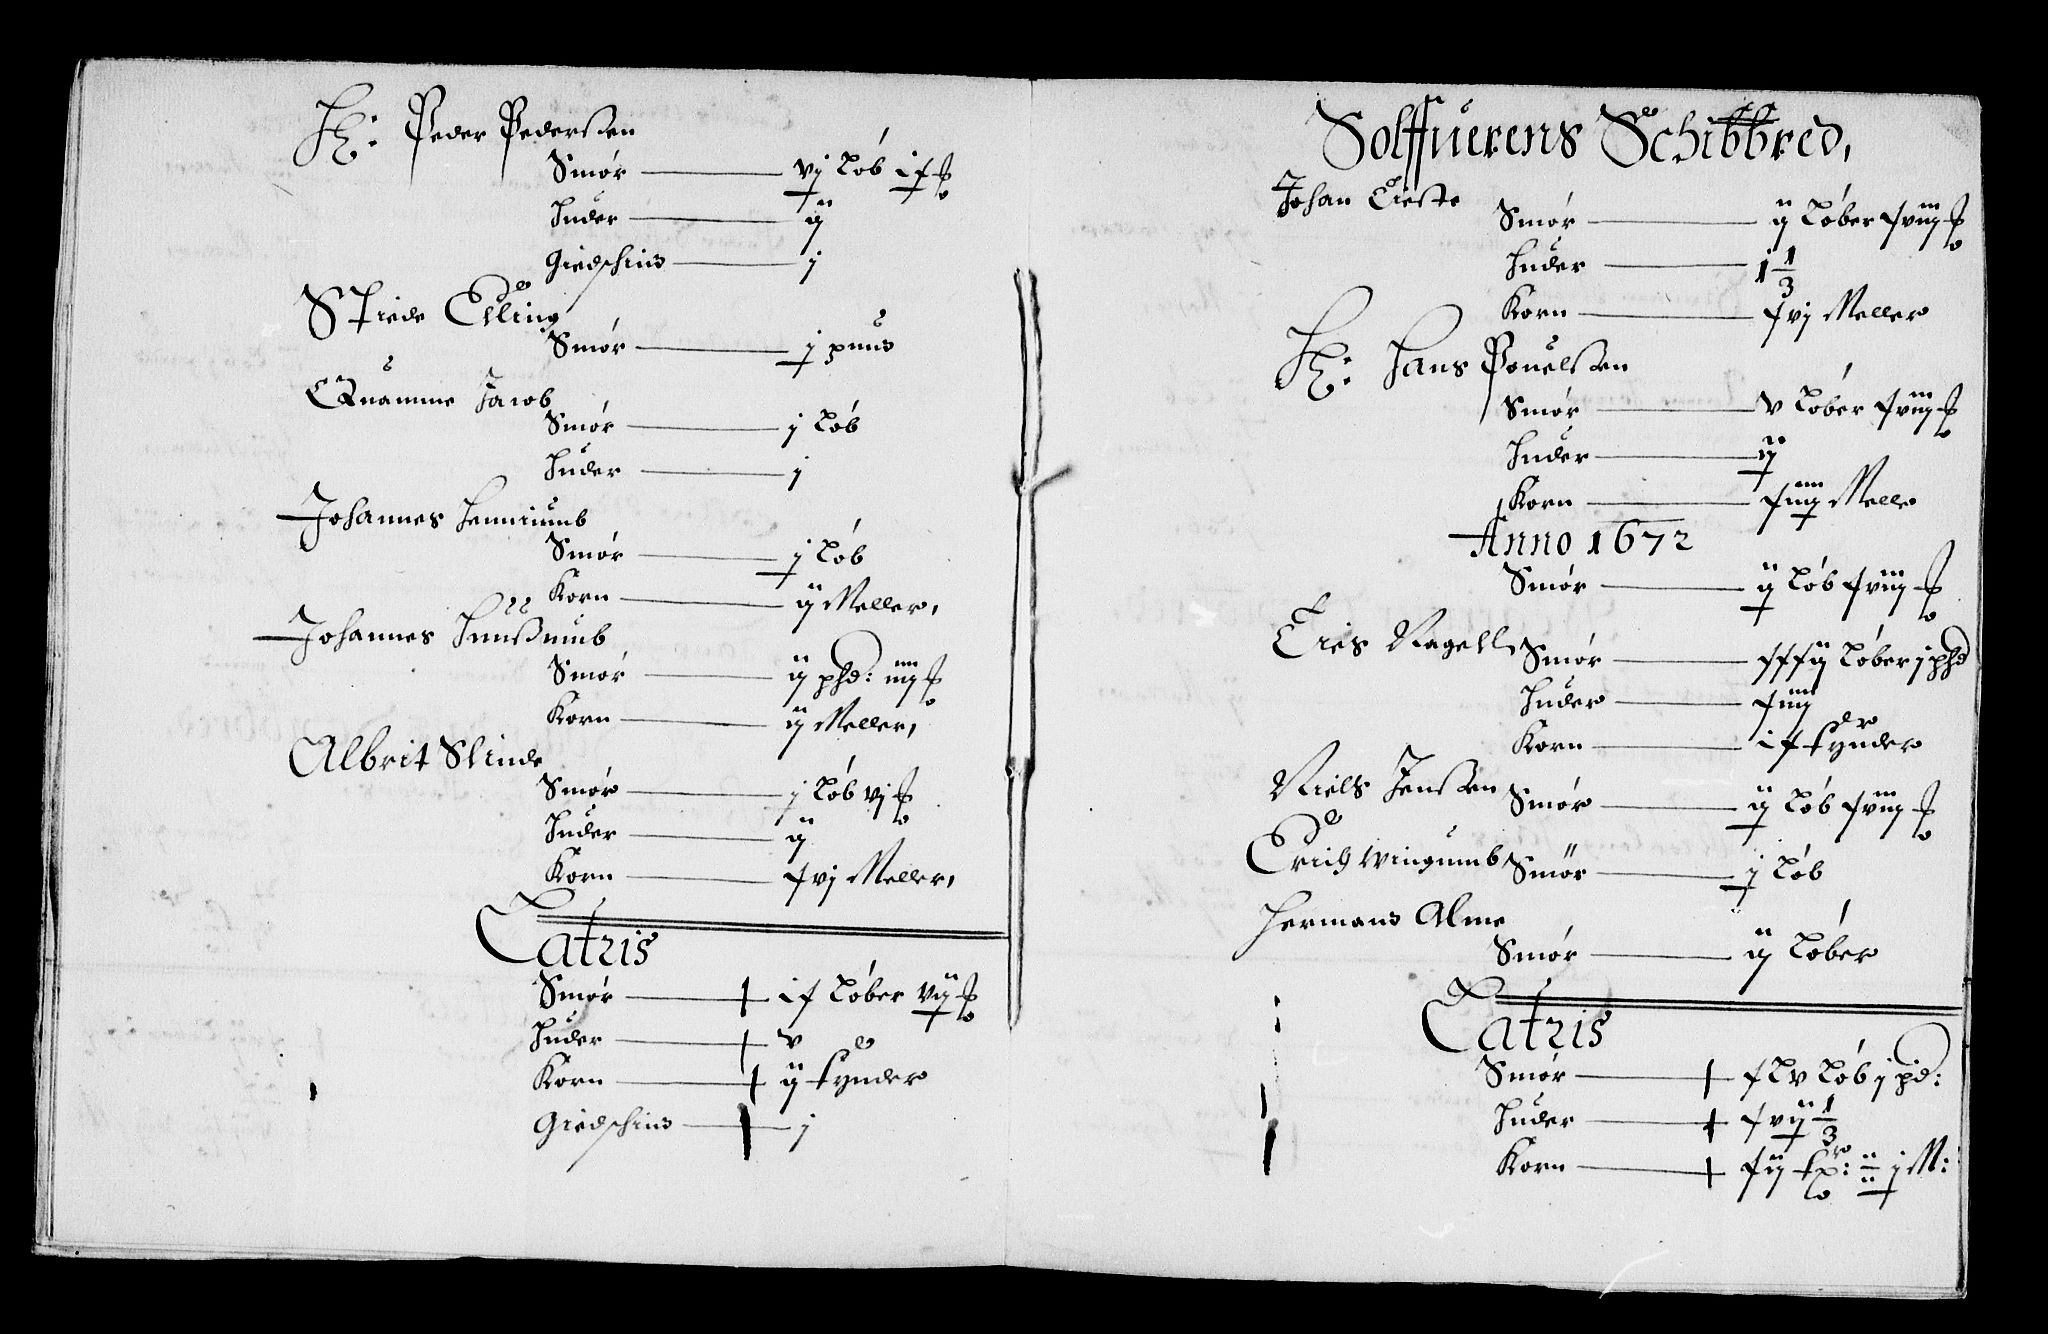 Hr: Peder Pederßen
Smør vj Løb ix ℔
Huder ij
Giedschind j
Stiede Elling
Smør j pund
Quamme Jacob
Smør j Løb
Huder j
Johannes
Smør j Løb
Korn ij Meller,
Johannes
Smør ij phd: iiij ℔
Korn ij Meller,
Albrit Slinde
Smør j Løb vj ℔
Huder ij
Korn xvj Meller,
Latris
Smør ix Løber vij ℔
Huder v
Korn ij tynder
Giedschind j
Solffuerens Schibbred,
Johan
Smør ij Løber xviij ℔
Huder 1 1/3
Korn xvj Meller
Hr: Hans Pouelßen
Smør v Løber xviij ℔
Huder ij
Korn xiiij Melle
Anno 1672
Smør ij Løb xviij ℔
Eries Nagell Smør xxxij Løber j phd
Huder xiiij
Korn ix tynder
Niels Jenßen Smør ij Løb xviij ℔
Erich Wingumb Smør j Løb
Hermand Alme
Smør ij Løber
Latris
Smør xLv Løb j pd:
Huder xvij 1/3
Korn xij tr: j M: